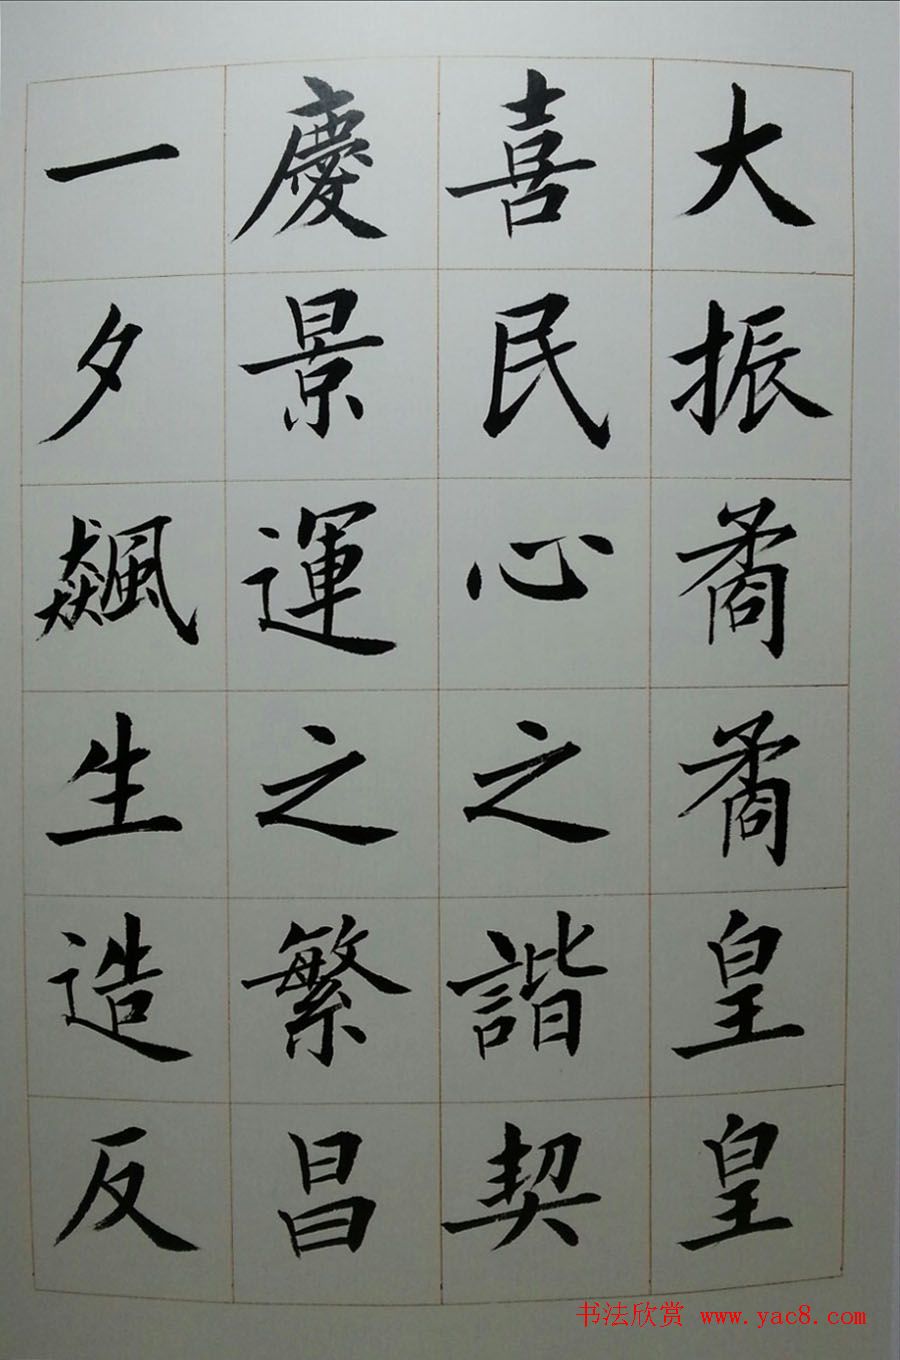 大振矞矞皇皇
喜民心之諧契
慶景運之繁昌
一夕飆生造反
书法欣赏 www.yac8.com